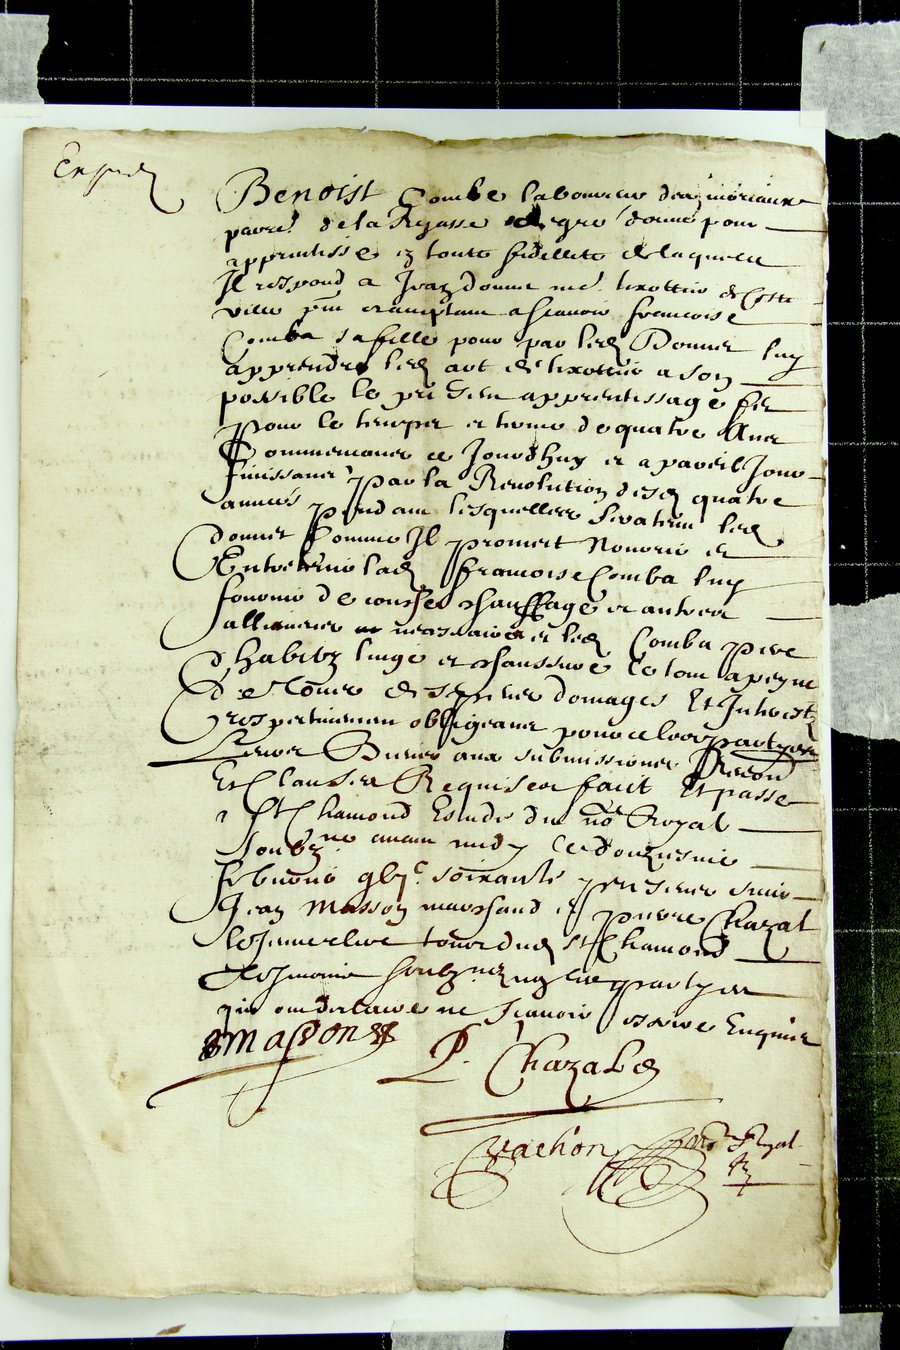 Benoist Combe laboureur
de la de gre donné pour
apprentisse et toutte fidellité de laquelle
Il respond a Jean Donnet tixottier de Ceste
ville pnt et acceptant a scavoir francoise
Comba sa fille pour par led Donnet luy
apprendre led art de tixottier a son
possible le put apprentissage fet
pour le temps et terme de quatre Ans
Commencant ce Jourdhuy et a pareil Jour
finissant par la Revolution desd quatre
années pendant lesquelles led
donnet Comme Il promect Nourrir et
Entretenir lad francoise Comba luy
fournir de couscher chauffage et autres
allimens necessaires et led Comba pere
d'habitz linge et chaussure Le tout a peyne
de tous despens domages Et Interestz
obligeant pour ce lesd partyes
Leurs Biens aux submissions Renon
Et Clauses Requises faict Et passé
a St Chamond Estude du no.re Royal
Soubz.né avant midy Le douziesme
febvrier gbjc soixante presents
Jean Masson marchand et pierre Chazal
dud St Chamond
soubz.nez les partyes
qui ont declairé ne scavoir escrire Enquis
Masson
P. Chazal
Vachon no.re Royal